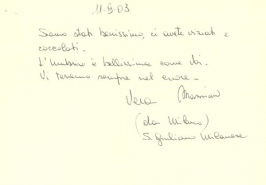 11-9-03
Siamo stati benissimo, ci avete viziati e
coccolati.
L'Umbria è bellissima come voi.
Vi terremo sempre nel cuore.
Vera
(da Milano)
S. Giuliano Milanese